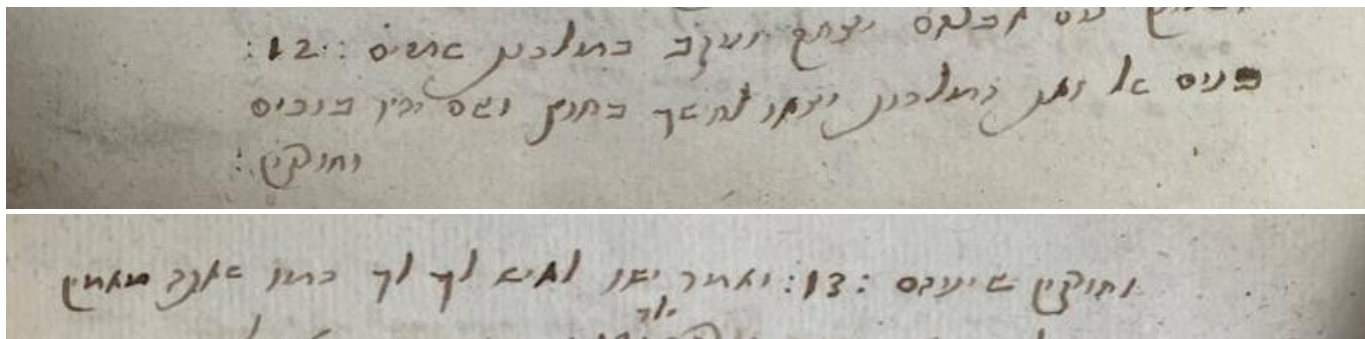 עם אברהם יצחק ויעקב במלכות שמים :12:
בנים אל זאת המלכות יצאו לחשך בחוץ ושם יהיו בוכים
וחורקין:
וחורקין שיניהם :13: ואמר ישו לאיש לך לך כמו שאתה מאמין